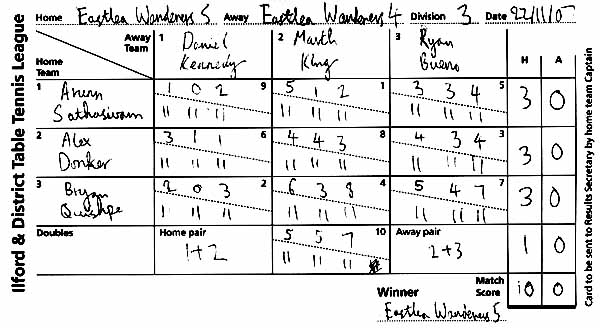 Home Eastlea Wanderers 5 Away Eastlea Wanderers 4 Division 3 Date 22/11/05
Ilford & District Table Tennis League
Away Team
Home Team
1 Daniel Kennedy
2 Marth King
3 Ryan Bueno
H A
1 Arurn Sathasivam
1 0 2 9
11 11 11
5 1 2 1
11 11 11
3 3 4 5
11 11 11
3 0
2 Alex Donker
3 1 1 6
11 11 11
4 4 3 8
11 11 11
4 3 4 3
11 11 11
3 0
3 Bryan Quishpe
2 0 3 2
11 11 11
6 3 8 4
11 11 11
5 4 7 7
11 11 11
3 0
Doubles
Home pair
1+2
5 5 7 10
11 11 11
Away pair
2+3
1 0
Winner
Eastlea Wanderers 5
Match Score
10 0
Card to be sent to Results Secretary by home team Captain